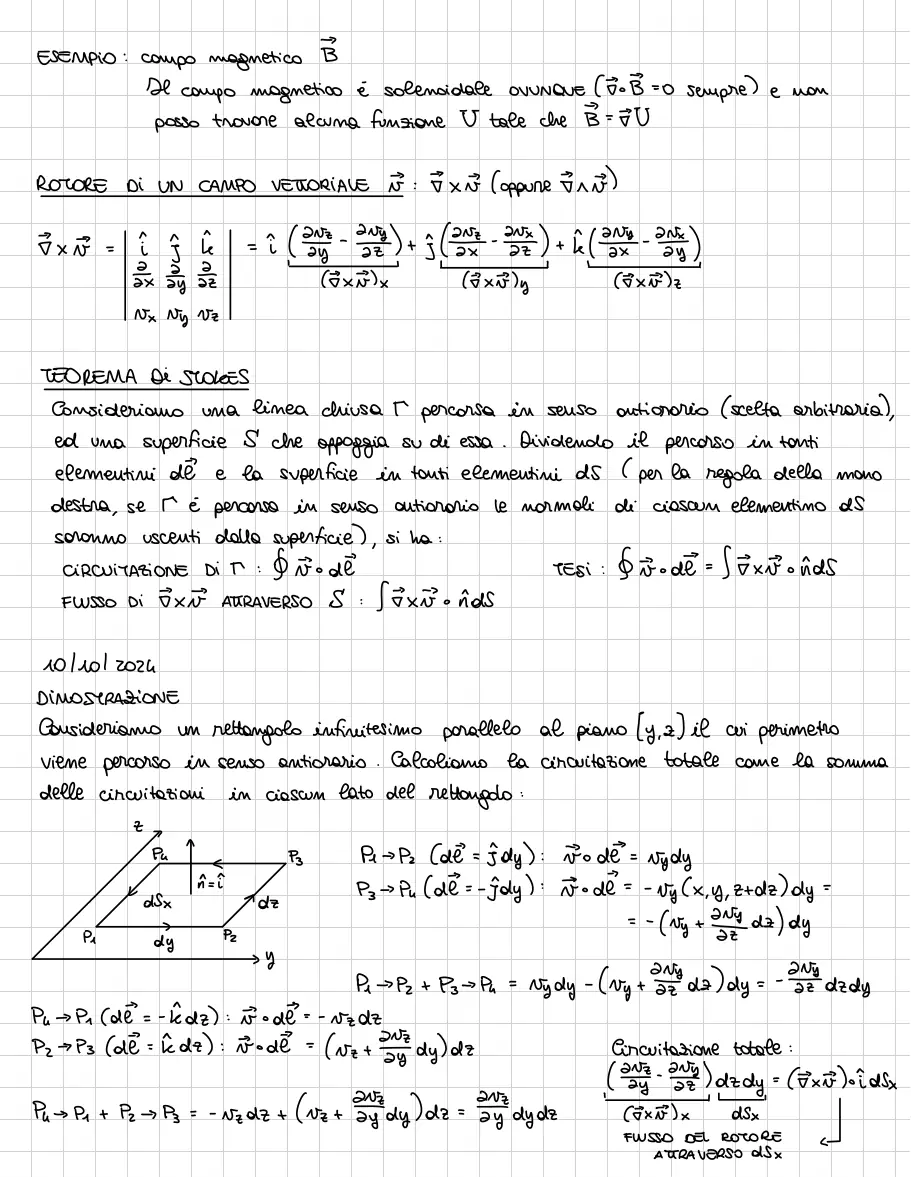 ESEMPIO : campo magnetico B⃗
Il campo magnetico é solenoidale OVUNQUE (∇⃗∘B⃗ =0 sempre) e non
posso trovare alcuna funzione U tale che B⃗ = ∇⃗U
ROTORE Di UN CAMPO VETTORIALE v⃗ : ∇⃗×v⃗ (oppure ∇⃗∧v⃗)
∇⃗×v⃗ = | î ĵ k̂ ; ∂/∂x ∂/∂y ∂/∂z ; vx vy vz | = î (∂vz/∂y - ∂vy/∂z) + ĵ (∂vz/∂x - ∂vx/∂z) + k̂ (∂vy/∂x - ∂vx/∂y)
(∇⃗×v⃗)x (∇⃗×v⃗)y (∇⃗×v⃗)z
TEOREMA Di STOKES
Consideriamo una linea chiusa Γ percorsa in senso antiorario (scelta arbitraria),
ed una superficie S che appoggia su di essa. Dividendo il percorso in tanti
elementini dℓ⃗ e la superficie in tanti elementini dS (per la regola della mano
destra, se Γ é percorso in senso antiorario le normali di ciascun elementino dS
saranno uscenti dalla superficie), si ha :
CIRCUITAZIONE DI Γ : ∮ v⃗∘dℓ⃗ TESI : ∮ v⃗∘dℓ⃗ = ∫ ∇⃗×v⃗∘n̂dS
FLUSSO DI ∇⃗×v⃗ ATTRAVERSO S : ∫ ∇⃗×v⃗∘n̂dS
10/10/2024
DIMOSTRAZIONE
Consideriamo un rettangolo infinitesimo parallelo al piano [y,z) il cui perimetro
viene percorso in senso antiorario. Calcoliamo la circuitazione totale come la somma
delle circuitazioni in ciascun lato del rettangolo :
z
P4 P3
n̂=î
dSx dz
P1 dy P2
y
P1→P2 (dℓ⃗ = ĵdy) : v⃗∘dℓ⃗ = vydy
P3→P4 (dℓ⃗ = -ĵdy) : v⃗∘dℓ⃗ = -vy(x,y,z+dz)dy =
= -(vy + ∂vy/∂z dz)dy
P1→P2 + P3→P4 = vydy - (vy + ∂vy/∂z dz)dy = -∂vy/∂z dzdy
P4→P1 (dℓ⃗ = -k̂dz) : v⃗∘dℓ⃗ = -vzdz
P2→P3 (dℓ⃗ = k̂dz) : v⃗∘dℓ⃗ = (vz + ∂vz/∂y dy)dz
P4→P1 + P2→P3 = -vzdz + (vz + ∂vz/∂y dy)dz = ∂vz/∂y dydz
Circuitazione totale :
(∂vz/∂y - ∂vy/∂z) dzdy = (∇⃗×v⃗)∘î dSx
(∇⃗×v⃗)x dSx
FLUSSO DEL ROTORE
ATTRAVERSO dSx